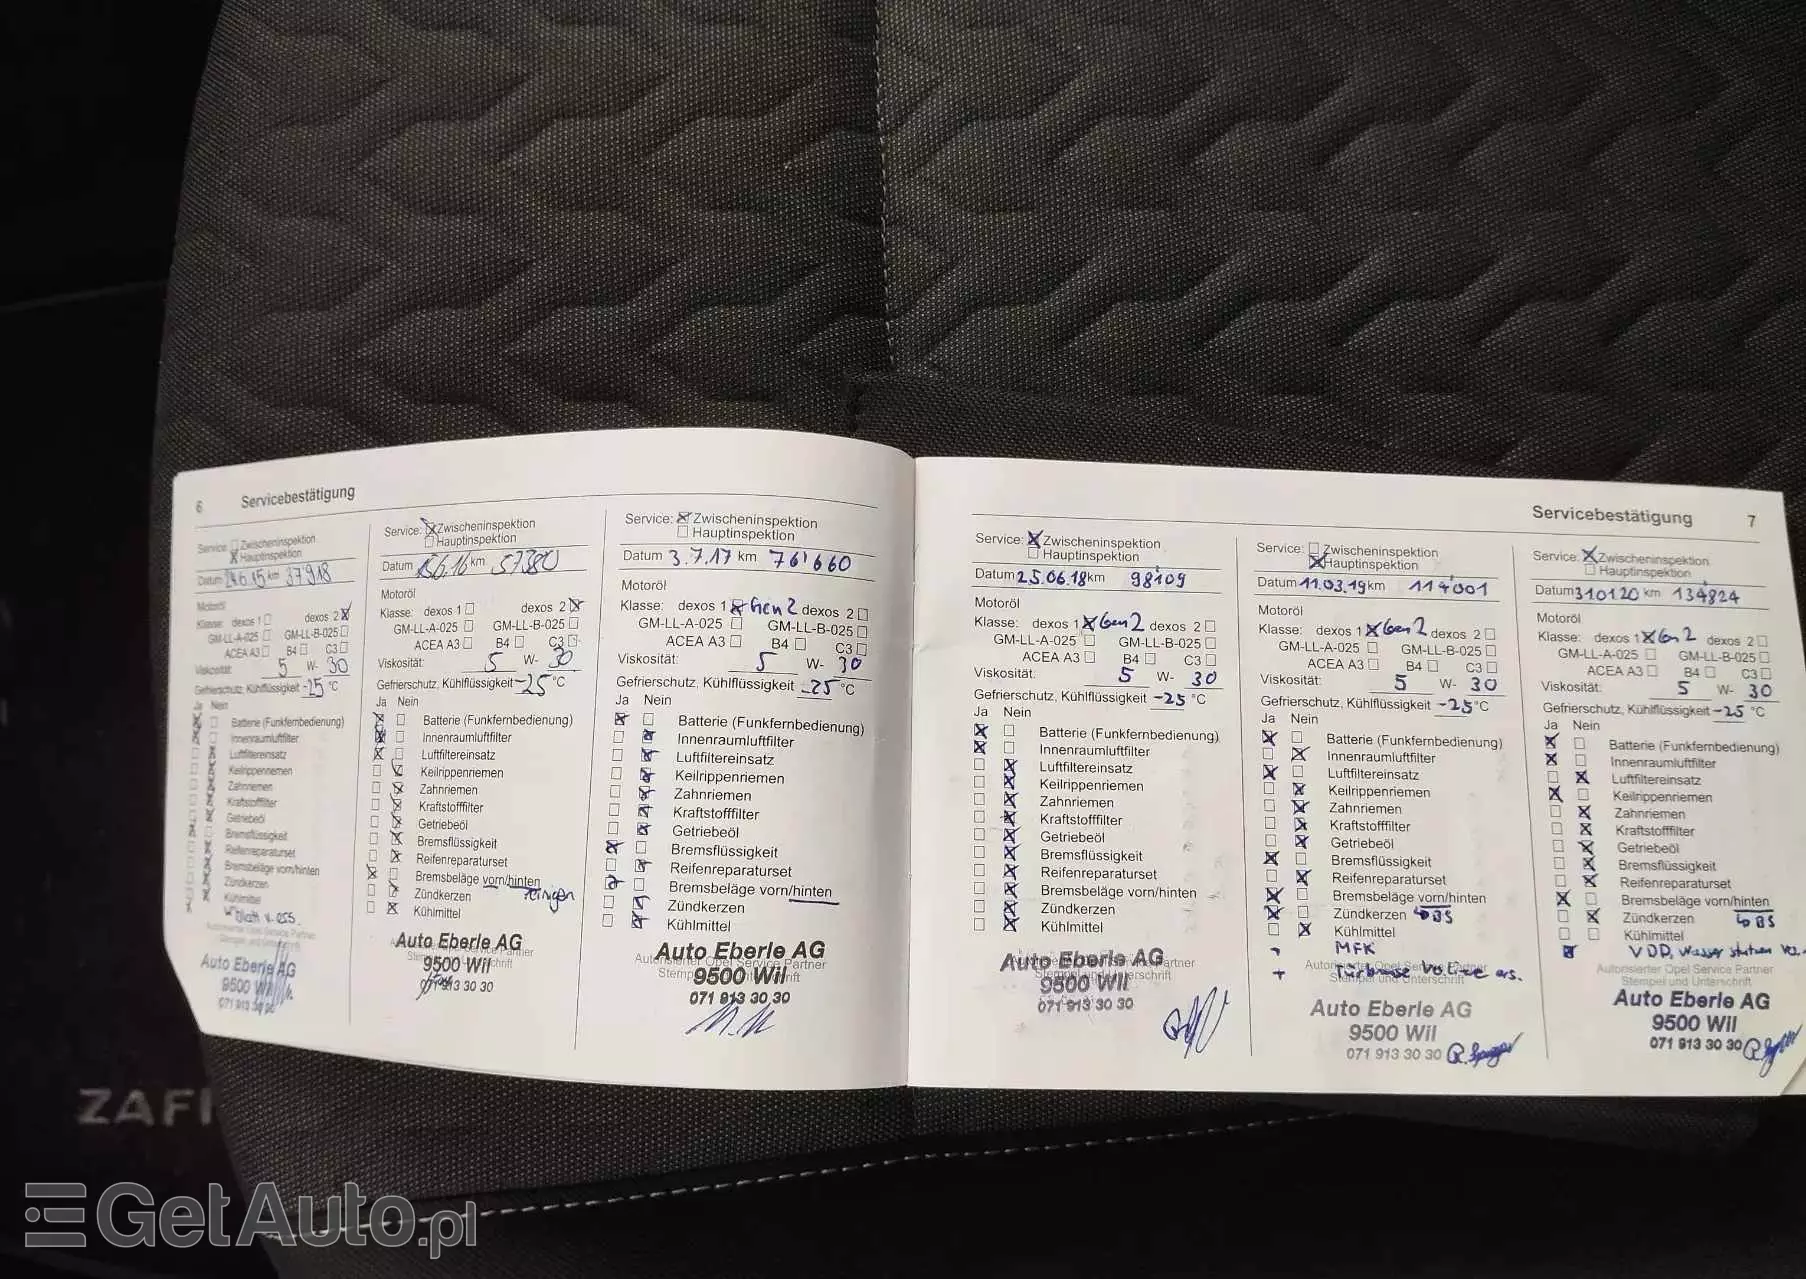 6 Servicebestätigung
Service: Zwischeninspektion
Hauptinspektion
Datum 24.6.15 km 37'918
Motoröl
Klasse: dexos 1 dexos 2
GM-LL-A-025 GM-LL-B-025
ACEA A3 B4 C3
Viskosität: 5 W- 30
Gefrierschutz, Kühlflüssigkeit -25 °C
Ja Nein
Batterie (Funkfernbedienung)
Innenraumluftfilter
Luftfiltereinsatz
Keilrippenriemen
Zahnriemen
Kraftstofffilter
Getriebeöl
Bremsflüssigkeit
Reifenreparaturset
Bremsbeläge vorn/hinten
Zündkerzen
Kühlmittel
Autorisierter Opel Service Partner
Stempel und Unterschrift
Auto Eberle AG
9500 Wil
071 913 30 30
Service: Zwischeninspektion
Hauptinspektion
Datum 6.16 km 57380
Motoröl
Klasse: dexos 1 dexos 2
GM-LL-A-025 GM-LL-B-025
ACEA A3 B4 C3
Viskosität: 5 W- 30
Gefrierschutz, Kühlflüssigkeit -25 °C
Ja Nein
Batterie (Funkfernbedienung)
Innenraumluftfilter
Luftfiltereinsatz
Keilrippenriemen
Zahnriemen
Kraftstofffilter
Getriebeöl
Bremsflüssigkeit
Reifenreparaturset
Bremsbeläge vorn/hinten
Zündkerzen
Kühlmittel
Auto Eberle AG
9500 Wil
071 913 30 30
Service: Zwischeninspektion
Hauptinspektion
Datum 3.7.17 km 76'660
Motoröl
Klasse: dexos 1 Gen 2 dexos 2
GM-LL-A-025 GM-LL-B-025
ACEA A3 B4 C3
Viskosität: 5 W- 30
Gefrierschutz, Kühlflüssigkeit -25 °C
Ja Nein
Batterie (Funkfernbedienung)
Innenraumluftfilter
Luftfiltereinsatz
Keilrippenriemen
Zahnriemen
Kraftstofffilter
Getriebeöl
Bremsflüssigkeit
Reifenreparaturset
Bremsbeläge vorn/hinten
Zündkerzen
Kühlmittel
Auto Eberle AG
Autorisierter Opel Service Partner
9500 Wil
Stempel und Unterschrift
071 913 30 30
Servicebestätigung 7
Service: Zwischeninspektion
Hauptinspektion
Datum 25.06.18 km 98'109
Motoröl
Klasse: dexos 1 Gen 2 dexos 2
GM-LL-A-025 GM-LL-B-025
ACEA A3 B4 C3
Viskosität: 5 W- 30
Gefrierschutz, Kühlflüssigkeit -25 °C
Ja Nein
Batterie (Funkfernbedienung)
Innenraumluftfilter
Luftfiltereinsatz
Keilrippenriemen
Zahnriemen
Kraftstofffilter
Getriebeöl
Bremsflüssigkeit
Reifenreparaturset
Bremsbeläge vorn/hinten
Zündkerzen
Kühlmittel
Auto Eberle AG
9500 Wil
071 913 30 30
Service: Zwischeninspektion
Hauptinspektion
Datum 11.03.19 km 114'001
Motoröl
Klasse: dexos 1 Gen 2 dexos 2
GM-LL-A-025 GM-LL-B-025
ACEA A3 B4 C3
Viskosität: 5 W- 30
Gefrierschutz, Kühlflüssigkeit -25 °C
Ja Nein
Batterie (Funkfernbedienung)
Innenraumluftfilter
Luftfiltereinsatz
Keilrippenriemen
Zahnriemen
Kraftstofffilter
Getriebeöl
Bremsflüssigkeit
Reifenreparaturset
Bremsbeläge vorn/hinten
Zündkerzen
Kühlmittel
+ MFK
Autorisierter Opel Service Partner
Stempel und Unterschrift
Auto Eberle AG
9500 Wil
071 913 30 30
Service: Zwischeninspektion
Hauptinspektion
Datum 310120 km 134'824
Motoröl
Klasse: dexos 1 Gen 2 dexos 2
GM-LL-A-025 GM-LL-B-025
ACEA A3 B4 C3
Viskosität: 5 W- 30
Gefrierschutz, Kühlflüssigkeit -25 °C
Ja Nein
Batterie (Funkfernbedienung)
Innenraumluftfilter
Luftfiltereinsatz
Keilrippenriemen
Zahnriemen
Kraftstofffilter
Getriebeöl
Bremsflüssigkeit
Reifenreparaturset
Bremsbeläge vorn/hinten
Zündkerzen
Kühlmittel
Autorisierter Opel Service Partner
Stempel und Unterschrift
Auto Eberle AG
9500 Wil
071 913 30 30
ZAFI
GetAuto.pl